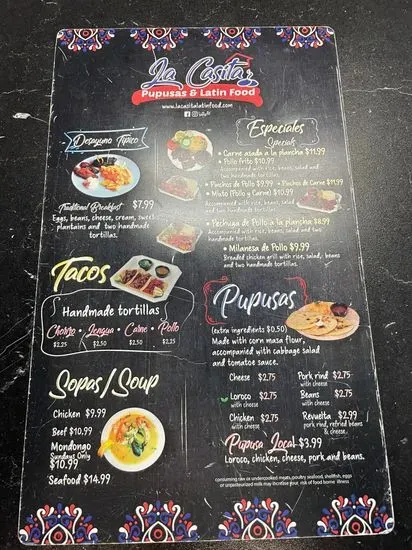 La Casita
Pupusas & Latin Food
www.lacasitalatinfood.com
Desayuno Típico
Traditional Breakfast $7.99
Eggs, beans, cheese, cream, sweet
plantains and two handmade
tortillas.
Especiales
Specials
• Carne asada a la plancha $11.99
• Pollo frito $10.99
Accompanied with rice, beans, salad and
two handmade tortillas.
• Pinchos de Pollo $9.99 • Pinchos de Carne $11.99
• Mixto (Pollo y Carne) $10.99
Accompanied with rice, beans, salad and
two handmade tortillas
• Pechuga de Pollo a la plancha $8.99
Accompanied with rice, beans, salad and
two handmade tortillas.
• Milanesa de Pollo $9.99
Breaded chicken grill with rice, salad, beans
and two handmade tortillas.
Tacos
Handmade tortillas
Chorizo • Lengua • Carne • Pollo
$2.25 $2.50 $2.50 $2.25
Sopas/Soup
Chicken $9.99
Beef $10.99
Mondongo
Sundays Only
$10.99
Seafood $14.99
Pupusas
(extra ingredients $0.50)
Made with corn masa flour,
accompanied with cabbage salad
and tomatoe sauce.
Cheese $2.75
Loroco $2.75
with cheese
Chicken $2.75
with cheese
Pork rind $2.75
with cheese
Beans $2.75
with cheese
Revuelta $2.99
pork rind, refried beans
& cheese.
Pupusa Loca! $3.99
Loroco, chicken, cheese, pork and beans.
consuming raw or undercooked meats, poultry seafood, shellfish, eggs
or unpasteurized milk may increase your risk of food borne illness